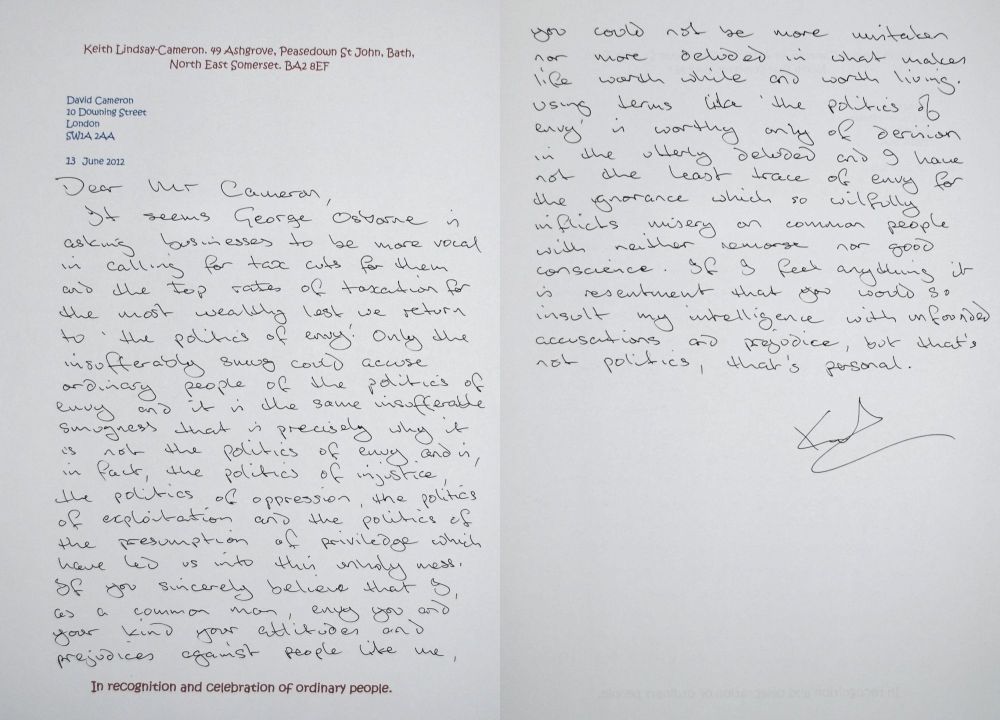 Keith Lindsay-Cameron. 49 Ashgrove, Peasedown St John, Bath,
North East Somerset. BA2 8EF
David Cameron
10 Downing Street
London
SW1A 2AA
13 June 2012
Dear Mr Cameron,
It seems George Osborne is
asking businesses to be more vocal
in calling for tax cuts for them
and the top rates of taxation for
the most wealthy lest we return
to 'the politics of envy'. Only the
insufferably smug could accuse
ordinary people of the politics of
envy and it is the same insufferable
smugness that is precisely why it
is not the politics of envy and is,
in fact, the politics of injustice,
the politics of oppression, the politics
of exploitation and the politics of
the presumption of priviledge which
have led us into this unholy mess.
If you sincerely believe that I,
as a common man, envy you and
your kind your attitudes and
prejudices against people like me,
In recognition and celebration of ordinary people.
you could not be more mistaken
nor more deluded in what makes
life worth while and worth living.
Using terms like 'the politics of
envy' is worthy only of derision
in the utterly deluded and I have
not the least trace of envy for
the ignorance which so wilfully
inflicts misery on common people
with neither remorse nor good
conscience. If I feel anything it
is resentment that you would so
insult my intelligence with unfounded
accusations and prejudice, but that's
not politics, that's personal.